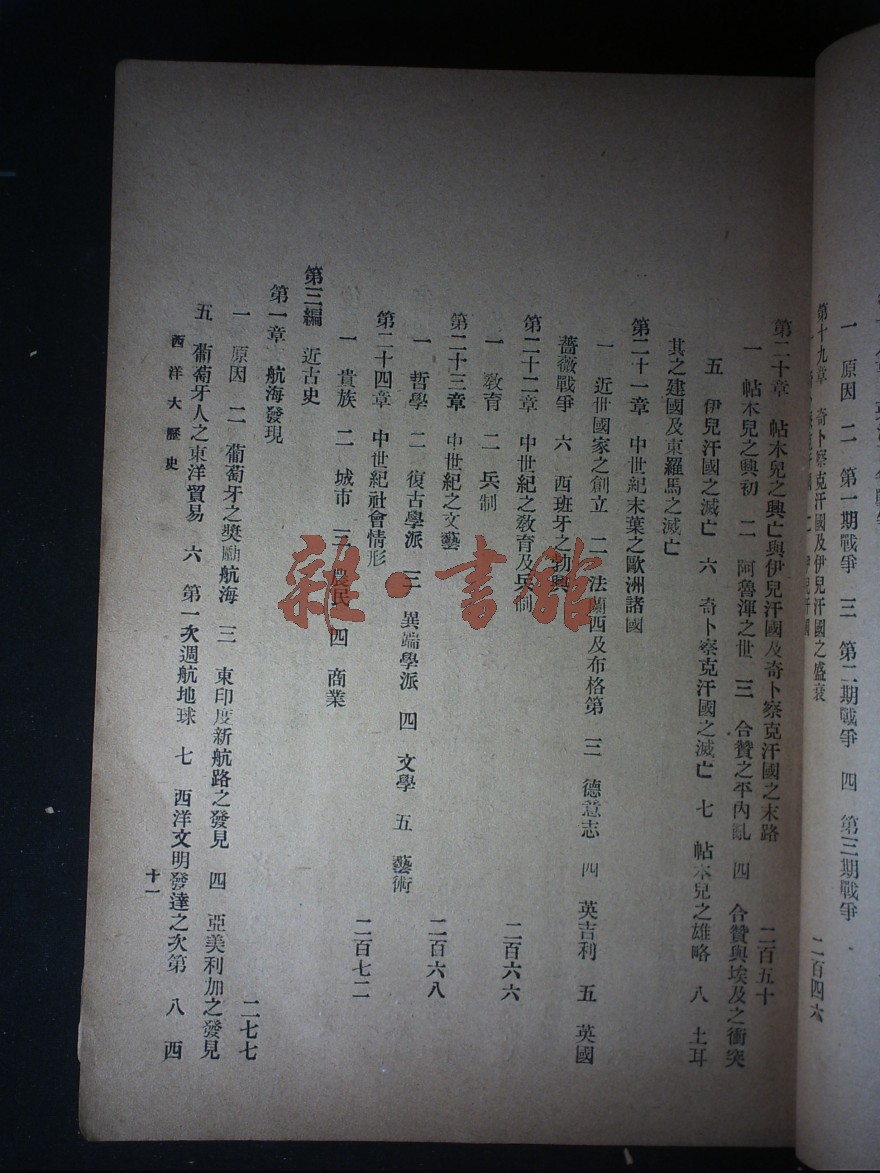 一 原因 二 第一期戰爭 三 第二期戰爭 四 第三期戰爭
二百四六
第十九章 奇卜察克汗國及伊兒汗國之盛衰
第二十章 帖木兒之興亡與伊兒汗國及奇卜察克汗國之末路 二百五十
一 帖木兒之興初 二 阿魯渾之世 三 合贊之平內亂 四 合贊與埃及之衝突
五 伊兒汗國之滅亡 六 奇卜察克汗國之滅亡 七 帖木兒之雄略 八 土耳
其之建國及東羅馬之滅亡
第二十一章 中世紀末葉之歐洲諸國
一 近世國家之創立 二 法蘭西及布格第 三 德意志 四 英吉利 五 英國
薔薇戰爭 六 西班牙之勃興
第二十二章 中世紀之敎育及兵制 二百六六
一 敎育 二 兵制
第二十三章 中世紀之文藝 二百六八
一 哲學 二 復古學派 三 異端學派 四 文學 五 藝術
第二十四章 中世紀社會情形 二百七二
一 貴族 二 城市 三 農民 四 商業
第三編 近古史
第一章 航海發現 二七七
一 原因 二 葡萄牙之獎勵航海 三 東印度新航路之發見 四 亞美利加之發見
五 葡萄牙人之東洋貿易 六 第一次週航地球 七 西洋文明發達之次第 八 西
西洋大歷史 十一
雜·書館